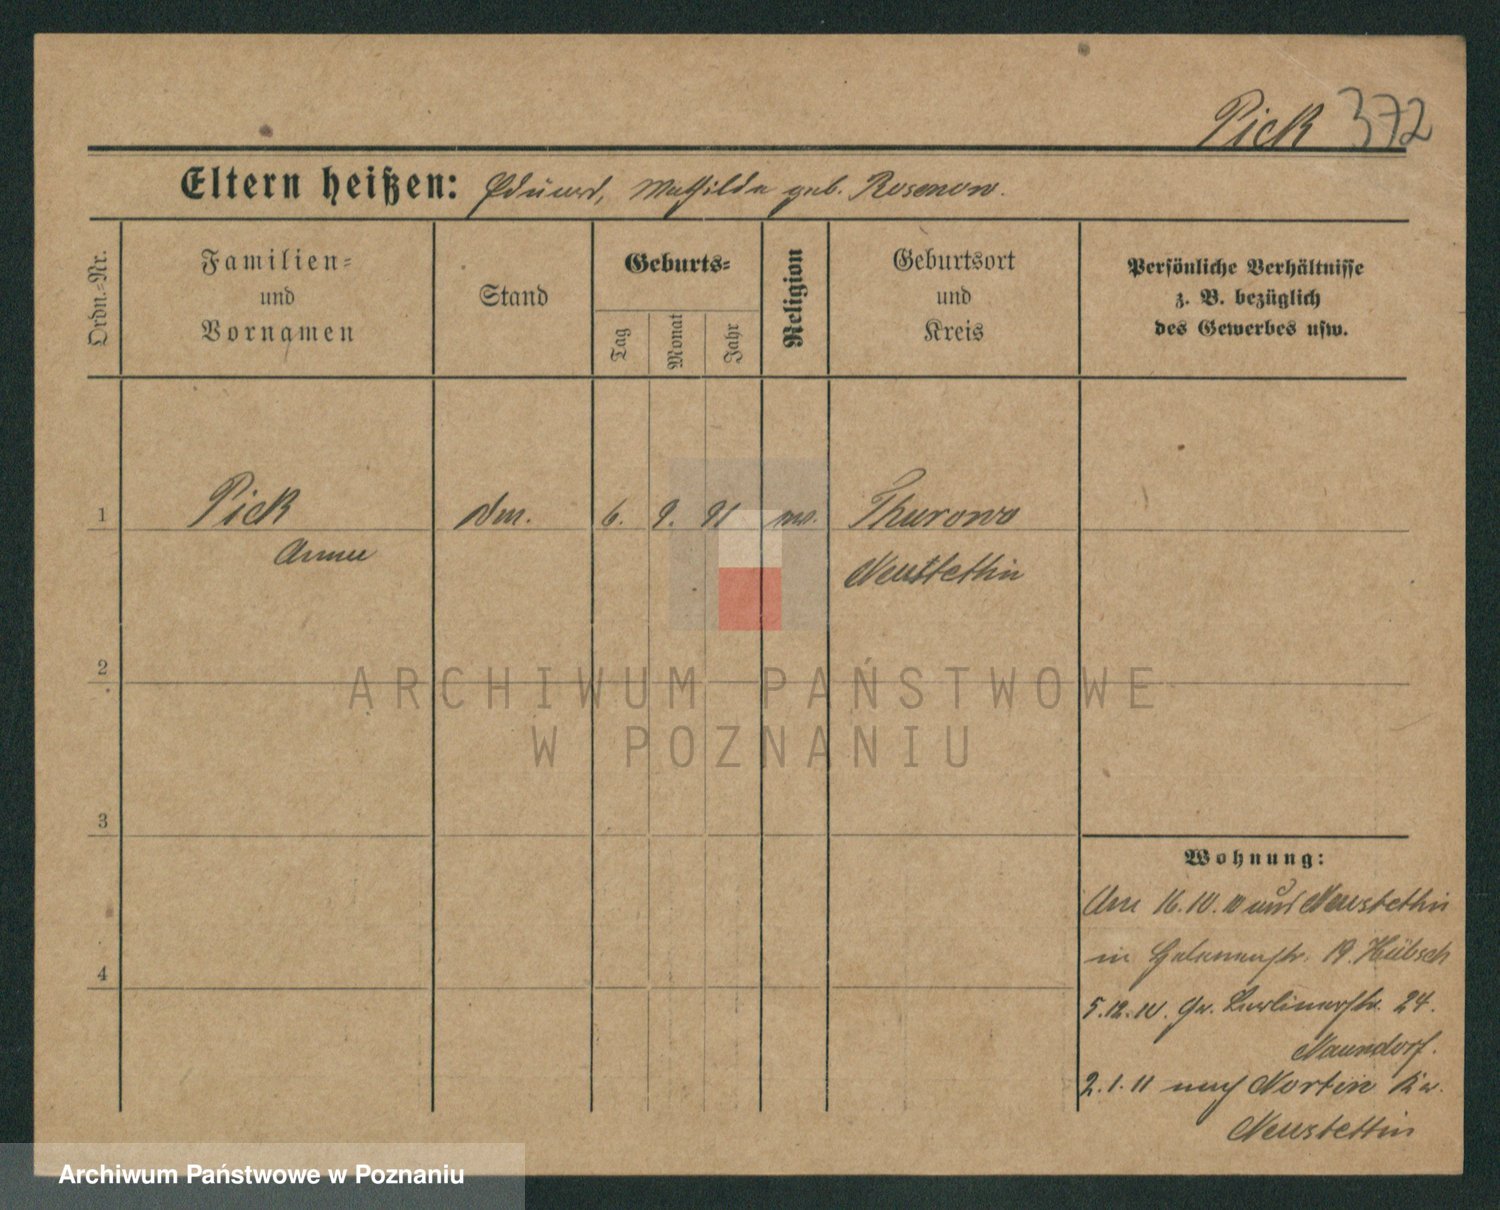 Pick 372
Eltern heißen: Eduard, Mathilda geb. Rosenow.
Ordn.-Nr.
Familien-
und
Vornamen
Stand
Geburts-
Tag
Monat
Jahr
Religion
Geburtsort
und
Kreis
Persönliche Verhältnisse
z. B. bezüglich
des Gewerbes usw.
1 Pick 6. 9. 91 Thurowo
Neustettin
2
3
4
Wohnung:
16.10.10 aus Neustettin
in 19. Hübsch
5.12.10. Gr. Berlinerstr. 24.
Naundorf.
2.1.11 nach Nortin Kr.
Neustettin
ARCHIWUM PAŃSTWOWE
W POZNANIU
Archiwum Państwowe w Poznaniu